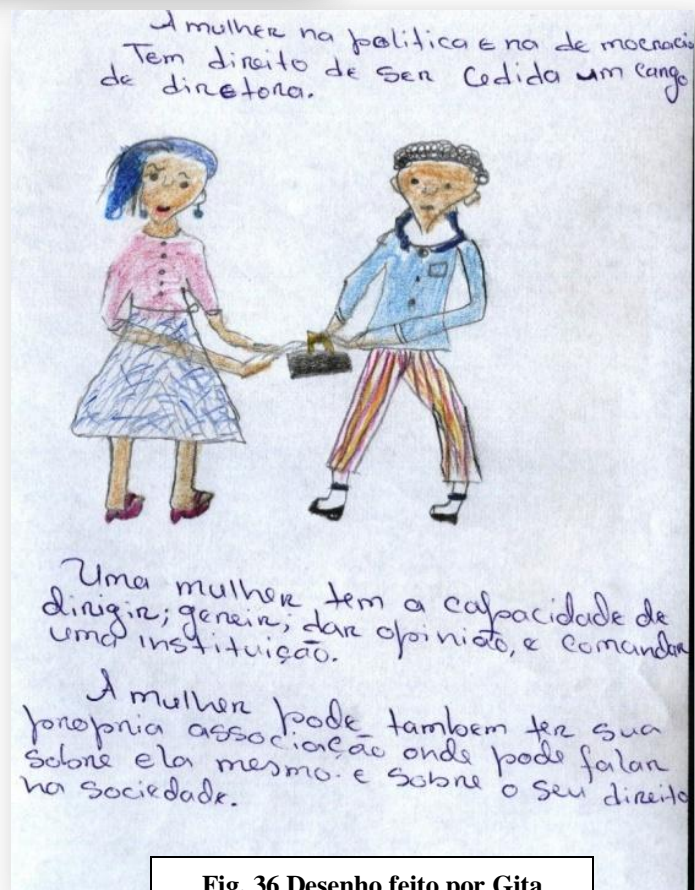 A mulher na politica e na de mocracia
Tem direito de ser cedida um cargo
de diretora.
Uma mulher tem a capacidade de
dirigir; gerir; dar opinião, e comandar
uma instituição.
A mulher pode tambem ter sua
propria associação onde pode falar
sobre ela mesmo. e sobre o seu direito
na sociedade.
Fig. 36 Desenho feito por Gita